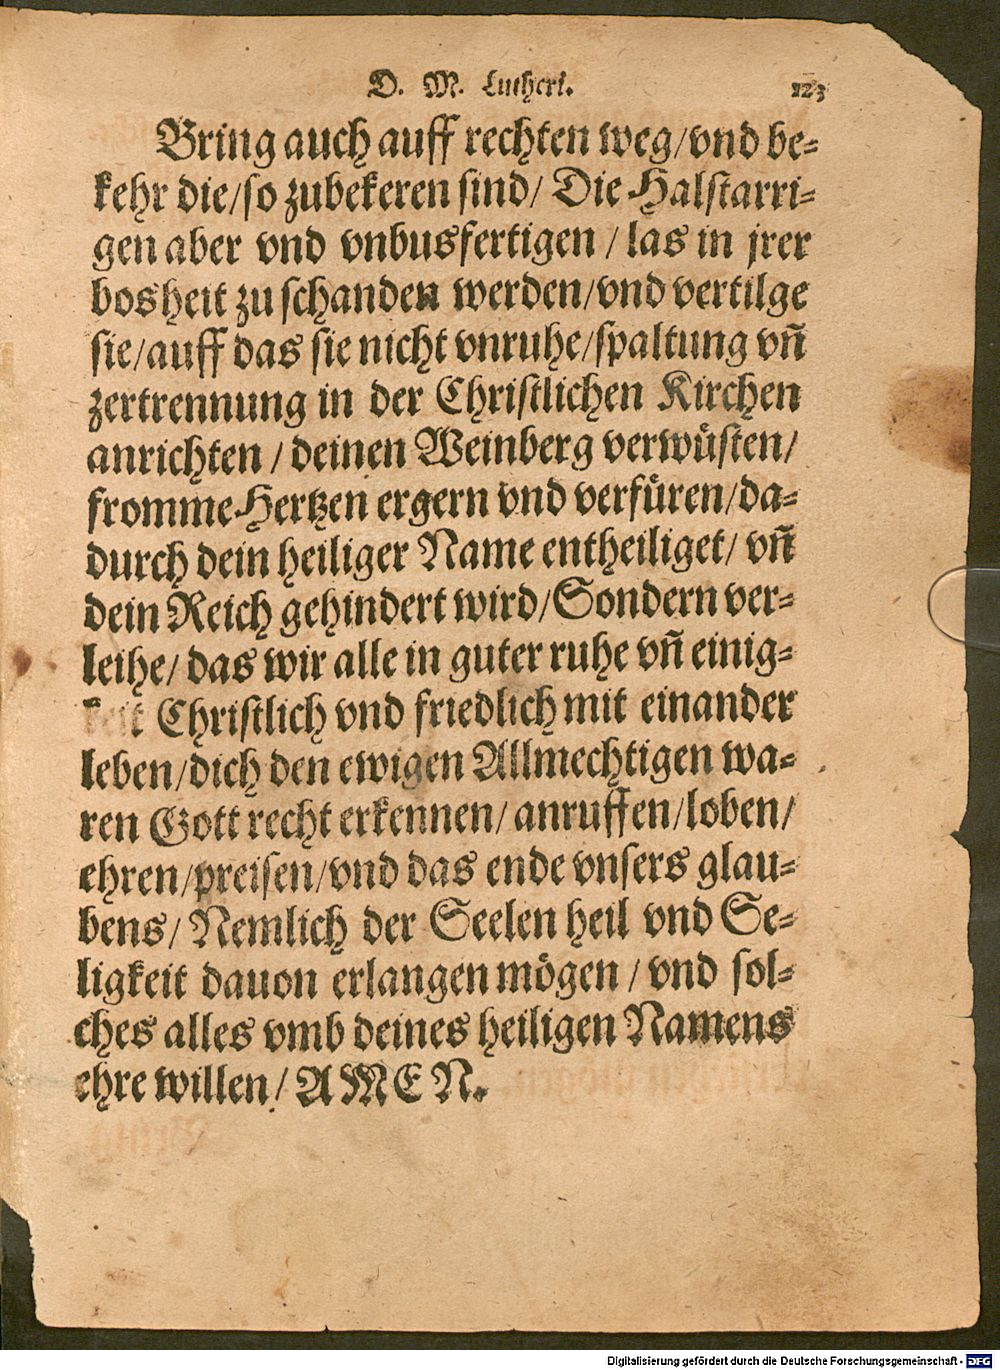 D. M. Lutheri. 123
Bring auch auff rechten weg/vnd be-
kehr die/so zubekeren sind/ Die Halstarri-
gen aber vnd vnbusfertigen / las in jrer
bosheit zu schanden werden/vnd vertilge
sie/auff das sie nicht vnruhe/spaltung vn̄
zertrennung in der Christlichen Kirchen
anrichten / deinen Weinberg verwüsten/
fromme Hertzen ergern vnd verfüren/da-
durch dein heiliger Name entheiliget/ vn̄
dein Reich gehindert wird/Sondern ver-
leihe/ das wir alle in guter ruhe vn̄ einig-
keit Christlich vnd friedlich mit einander
leben/dich den ewigen Allmechtigen wa-
ren Gott recht erkennen/anruffen/loben/
ehren/preisen/vnd das ende vnsers glau-
bens/ Nemlich der Seelen heil vnd Se-
ligkeit dauon erlangen mögen / vnd sol-
ches alles vmb deines heiligen Namens
ehre willen/ AMEN.
Digitalisierung gefördert durch die Deutsche Forschungsgemeinschaft - DFG